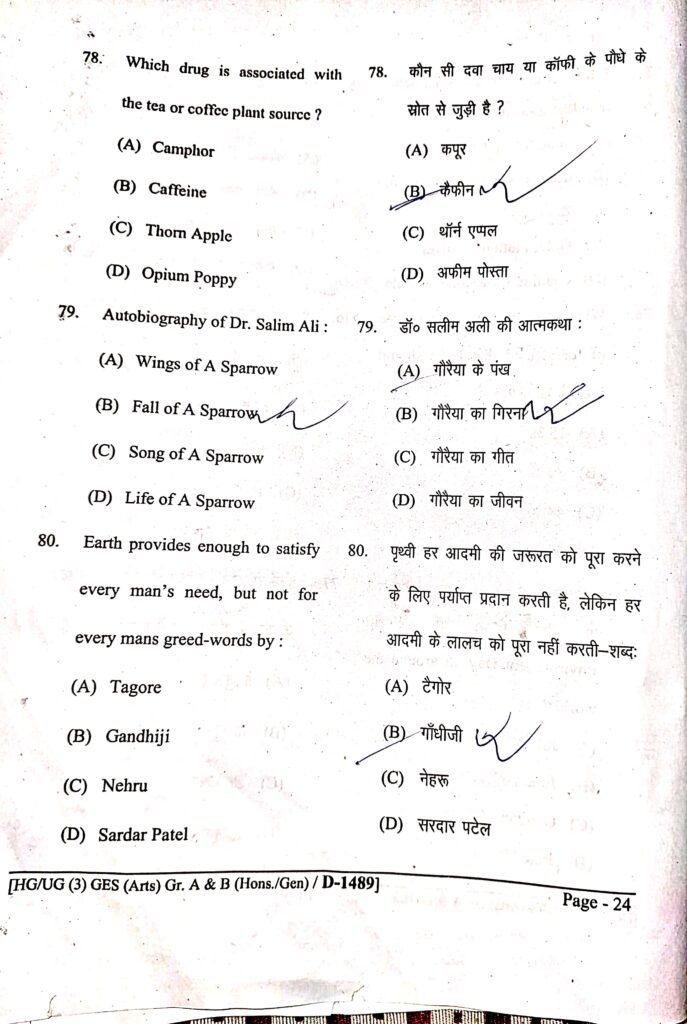 78. Which drug is associated with
the tea or coffee plant source ?
(A) Camphor
(B) Caffeine
(C) Thorn Apple
(D) Opium Poppy
79. Autobiography of Dr. Salim Ali :
(A) Wings of A Sparrow
(B) Fall of A Sparrow
(C) Song of A Sparrow
(D) Life of A Sparrow
80. Earth provides enough to satisfy
every man's need, but not for
every mans greed-words by :
(A) Tagore
(B) Gandhiji
(C) Nehru
(D) Sardar Patel
78. कौन सी दवा चाय या कॉफी के पौधे के
स्रोत से जुड़ी है ?
(A) कपूर
(B) कैफीन
(C) थॉर्न एप्पल
(D) अफीम पोस्ता
79. डॉ० सलीम अली की आत्मकथा :
(A) गौरैया के पंख
(B) गौरैया का गिरना
(C) गौरैया का गीत
(D) गौरैया का जीवन
80. पृथ्वी हर आदमी की जरूरत को पूरा करने
के लिए पर्याप्त प्रदान करती है, लेकिन हर
आदमी के लालच को पूरा नहीं करती–शब्दः
(A) टैगोर
(B) गाँधीजी
(C) नेहरू
(D) सरदार पटेल
[HG/UG (3) GES (Arts) Gr. A & B (Hons./Gen) / D-1489]
Page - 24